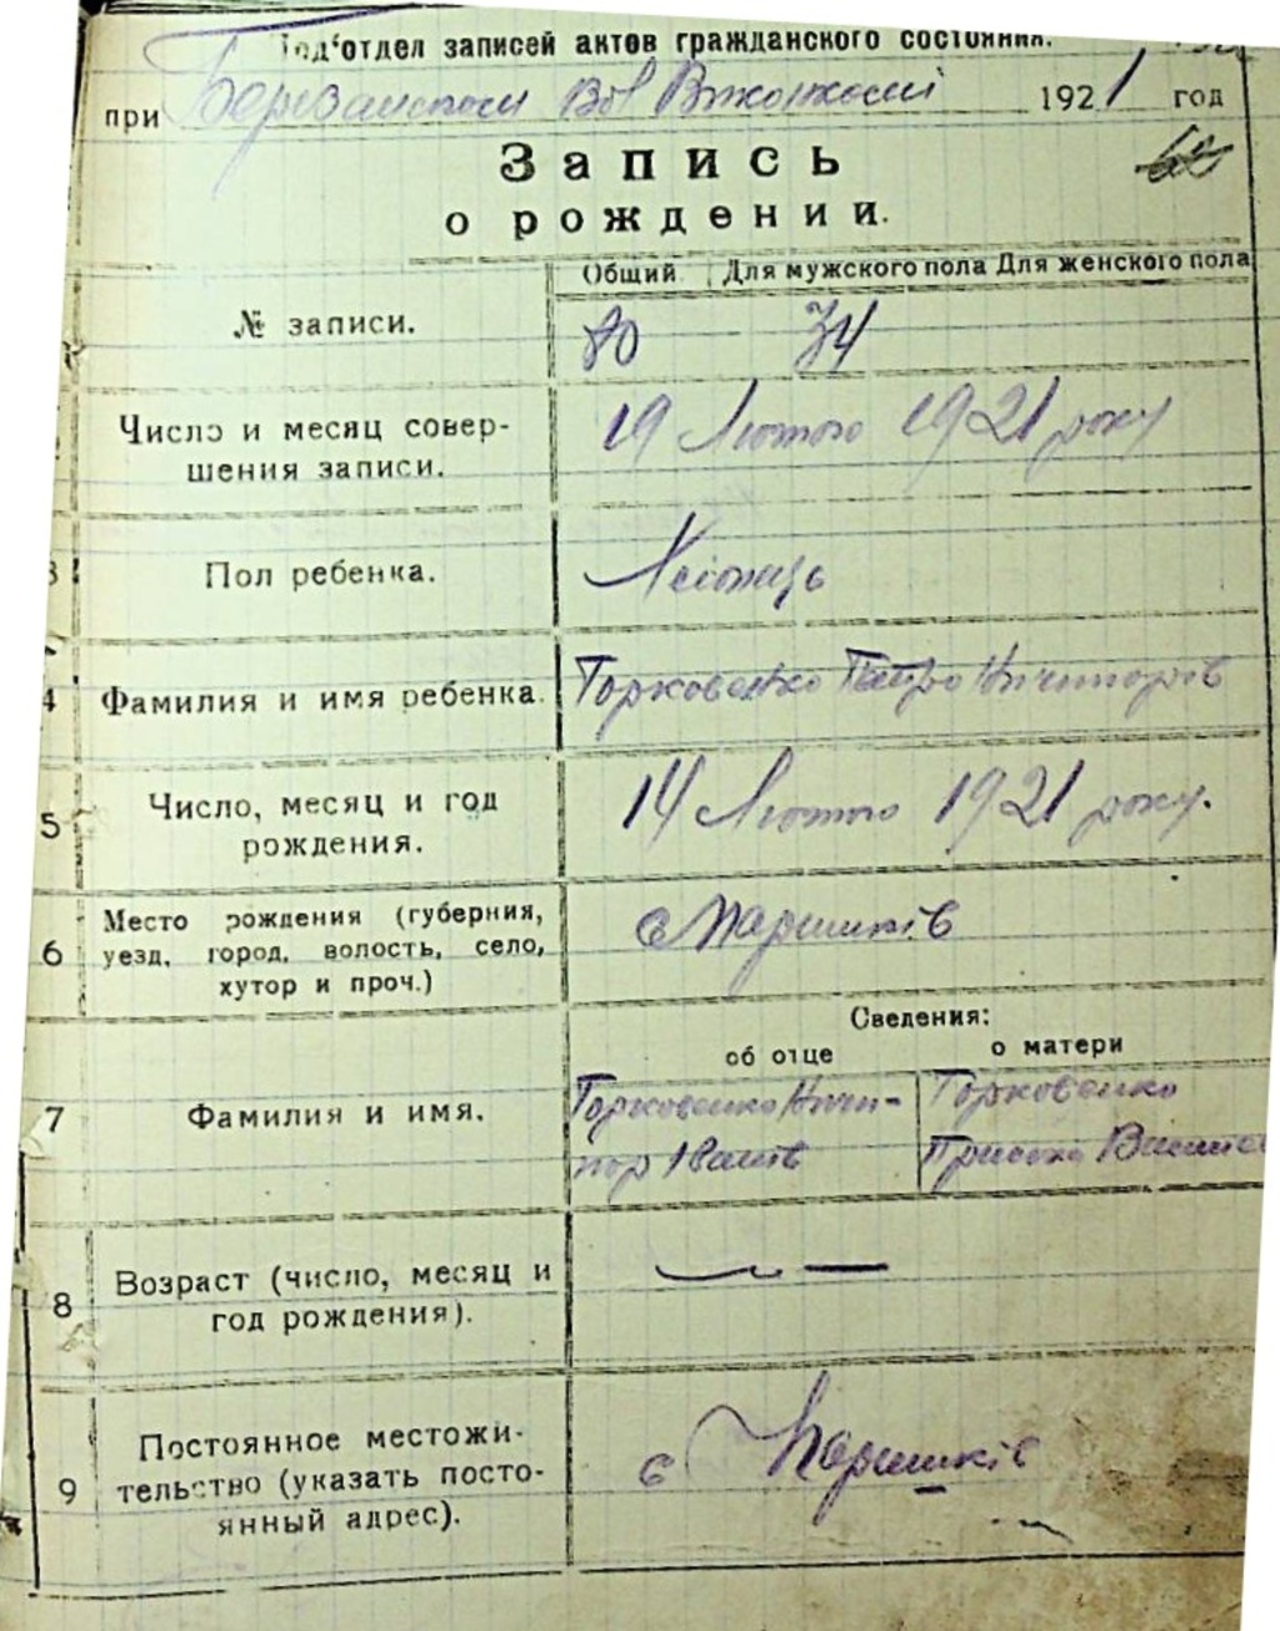 Под'отдел записей актов гражданского состояния.
при Березанском Вол Виконкомі 1921 год
Запись
о рождении.
Общий Для мужского пола Для женского пола
№ записи. 80 34
Число и месяц совер-
шения записи.
19 Лютого 1921 року
3 Пол ребенка. Хлопець
4 Фамилия и имя ребенка. Торковенко Петро Ничипорів
5 Число, месяц и год
рождения.
14 Лютого 1921 року.
6 Место рождения (губерния,
уезд, город, волость, село,
хутор и проч.)
с Паришків
Сведения:
об отце о матери
7 Фамилия и имя.
Торковенко Ничи- Торковенко
пор Іванів Приська
8 Возраст (число, месяц и
год рождения).
9 Постоянное местожи-
тельство (указать посто-
янный адрес).
с Паришків